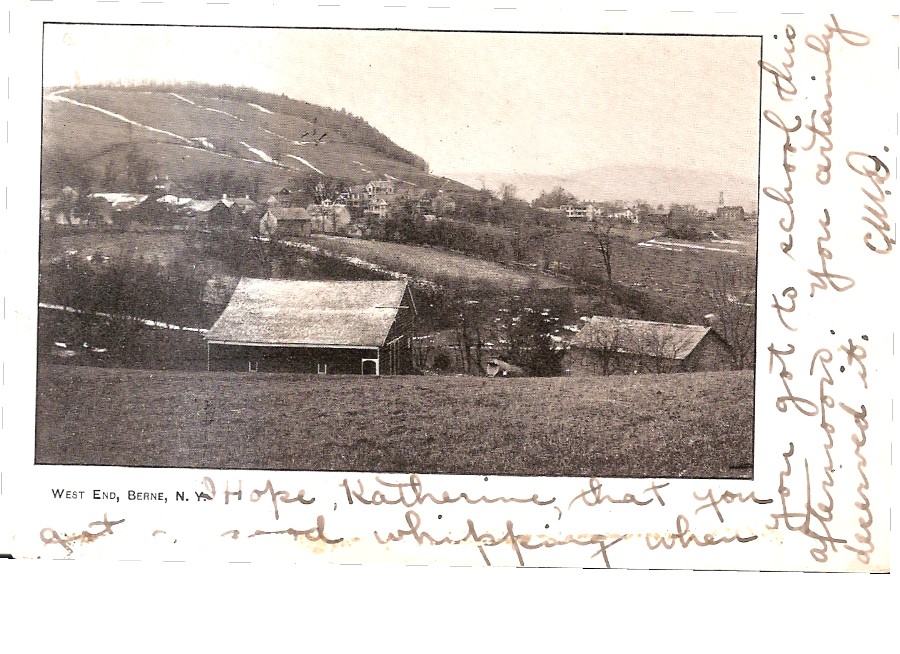 WEST END, BERNE, N. Y.
I Hope, Katherine, that you
got a good whipping when
you got to school this
afternoon. You certainly
deserved it.